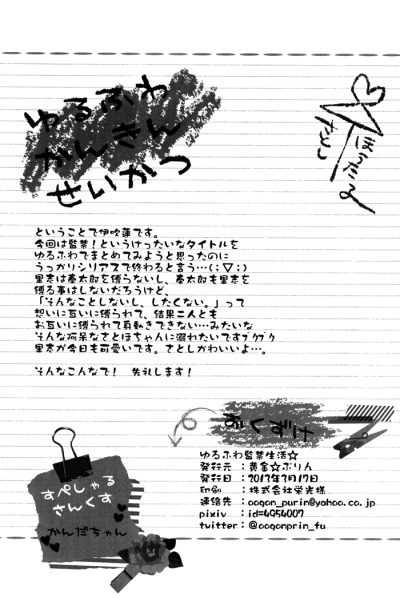 ゆるふわ
かんきん
せいかつ
さとし
ほうたる
ということで伊吹蓮です。
今回は監禁！というけったいなタイトルを
ゆるふわでまとめてみようと思ったのに
うっかりシリアスで終わると言う…(;▽;)
里志は奉太郎を縛らないし、奉太郎も里志を
縛る事はしないだろうけど、
「そんなことしないし、したくない。」って
想いに互いに縛られて、結果二人とも
お互いに縛られて身動きできない…みたいな
そんな阿呆なさとほちゃんに溺れたいですブクブク
里志が今日も可愛いです。さとしかわいいよ…。
そんなこんなで！ 失礼します！
おくずけ
ゆるふわ監禁生活☆
発行元 : 黄金☆ぷりん
発行日 : 2013年3月17日
印刷 : 株式会社栄光様
連絡先 : oogon_purin@yahoo.co.jp
pixiv : id=4954007
twitter : @oogonprin_fu
すぺしゃる
さんくす
かんだちゃん